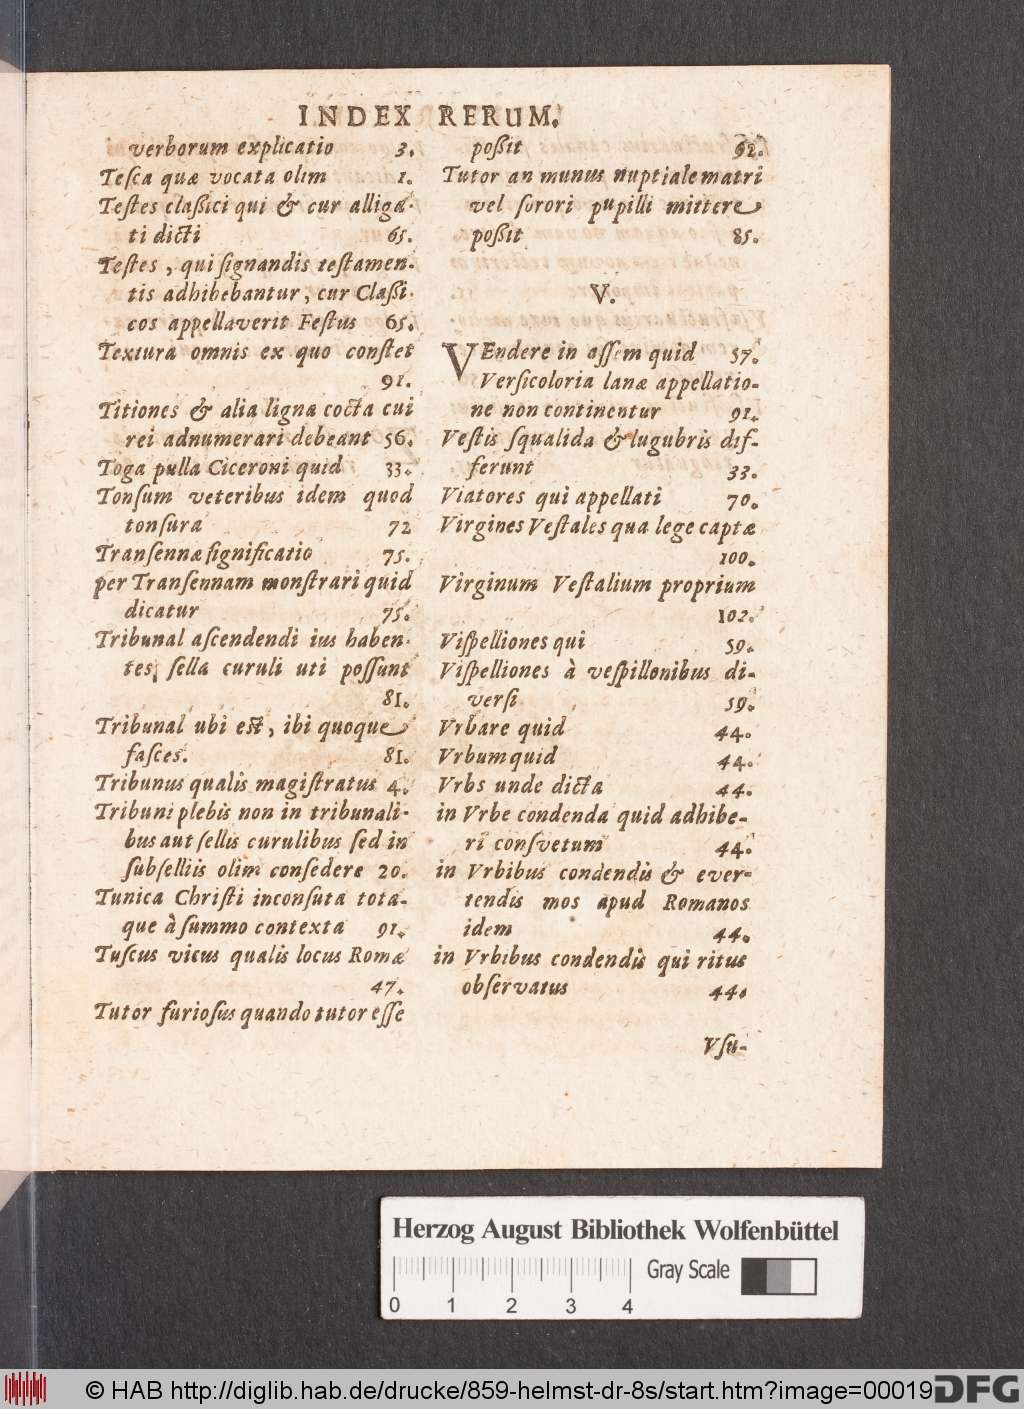 INDEX RERUM.
verborum explicatio 3.
Tesca quæ vocata olim 1.
Testes claßici qui & cur alliga-
ti dicti 65.
Testes, qui signandis testamen-
tis adhibebantur, cur Claßi-
cos appellaverit Festus 65.
Textura omnis ex quo constet
91.
Titiones & alia ligna cocta cui
rei adnumerari debeant 56.
Toga pulla Ciceroni quid 33.
Tonsum veteribus idem quod
tonsura 72
Transennæ significatio 75.
per Transennam monstrari quid
dicatur 75.
Tribunal ascendendi ius haben-
tes sella curuli uti possunt
81.
Tribunal ubi est, ibi quoque
fasces. 81.
Tribunus qualis magistratus 4.
Tribuni plebis non in tribunali-
bus aut sellis curulibus sed in
subselliis olim consedere 20.
Tunica Christi inconsuta tota-
que à summo contexta 91.
Tuscus vicus qualis locus Romæ
47.
Tutor furiosus quando tutor esse
poßit 92.
Tutor an munus nuptiale matri
vel sorori pupilli mittere
poßit 85.
V.
VEndere in assem quid 57.
Versicoloria lanæ appellatio-
ne non continentur 91.
Vestis squalida & lugubris dif-
ferunt 33.
Viatores qui appellati 70.
Virgines Vestales qua lege captæ
100.
Virginum Vestalium proprium
102.
Vispelliones qui 59.
Vispelliones à vespillonibus di-
versi 59.
Vrbare quid 44.
Vrbum quid 44.
Vrbs unde dicta 44.
in Vrbe condenda quid adhibe-
ri consvetum 44.
in Vrbibus condendis & ever-
tendis mos apud Romanos
idem 44.
in Vrbibus condendis qui ritus
observatus 44.
Vsu-
Herzog August Bibliothek Wolfenbüttel
Gray Scale
0 1 2 3 4
© HAB http://diglib.hab.de/drucke/859-helmst-dr-8s/start.htm?image=00019
DFG